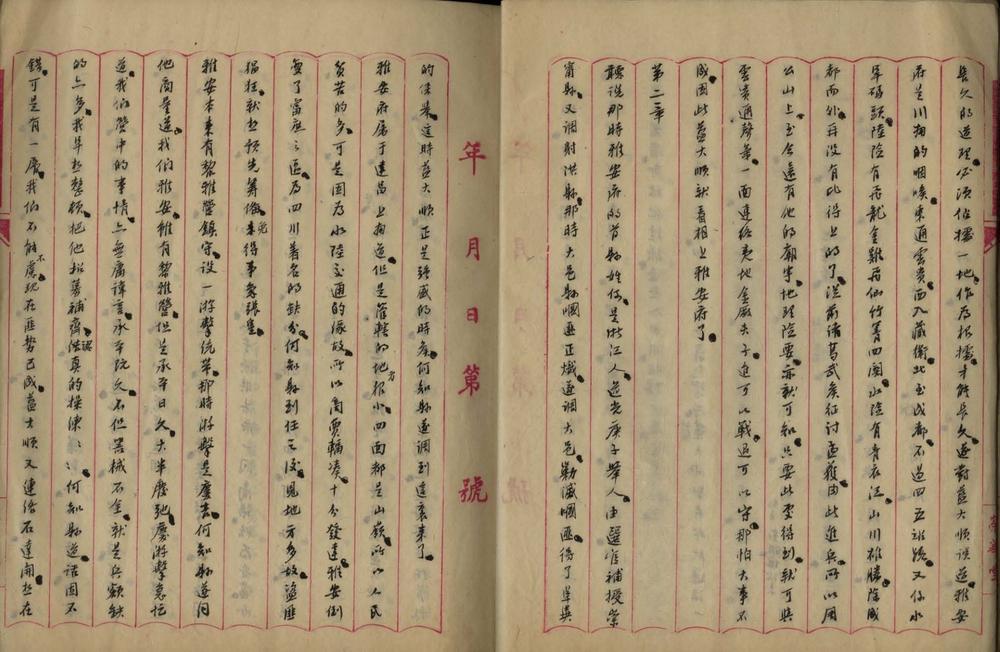 長久的道理必須佔據一地作為根據才能長久遂對藍大順談道雅安
府是川南的咽喉東通雲貴西入藏衛北至成都不過四五站路又係水
旱碼頭陸險有飛龍金雞飛仙竹箐四關水險有青衣江山川雄勝除成
都而外再沒有比得上的了從前諸葛武侯征討孟獲由此進兵所以周
公山上至今還有他的廟宇地理險要亦就可知只要此處得到就可與
雲貴通聲氣一面連絡夷地金廠夫子進可以戰退可以守那怕大事不
成因此藍大順就看相上雅安府了
第二章
聽說那時雅安府的首縣姓何是浙江人道光庚子舉人由選官補授榮
縣又調射洪縣那時大邑縣嘓匪正熾遂調大邑勦滅嘓匪得了卓異
年 月 日 第 號
的保案這時藍大順正是強盛的時候何知縣遂調到這裏來了
雅安府屬于建昌上南道但是管轄的地方很小四面都是山嶺所以人民
貧苦的多可是因為水陸交通的緣故所以商賈輻湊十分發達雅安倒
變了富庶之區為四川著名的缺分何知縣到任三後見地方多故盜匪
猖狂就想預先籌備免來得事發張皇
雅安本來有黎雅營鎮守設一游擊統帶那時游擊是慶吉何知縣遂同
他商量道我們雅安雖有黎雅營但是承平日久大半廢弛慶游擊急忙
道我們營中的事情亦無庸諱言承平既久不但器械不全就是兵額缺
的亦多我早想整頓把他招募補齊認真的操練何知縣道話固不
錯可是有一層我們不能不慮現在匪勢已成藍大順又連絡石達開想在